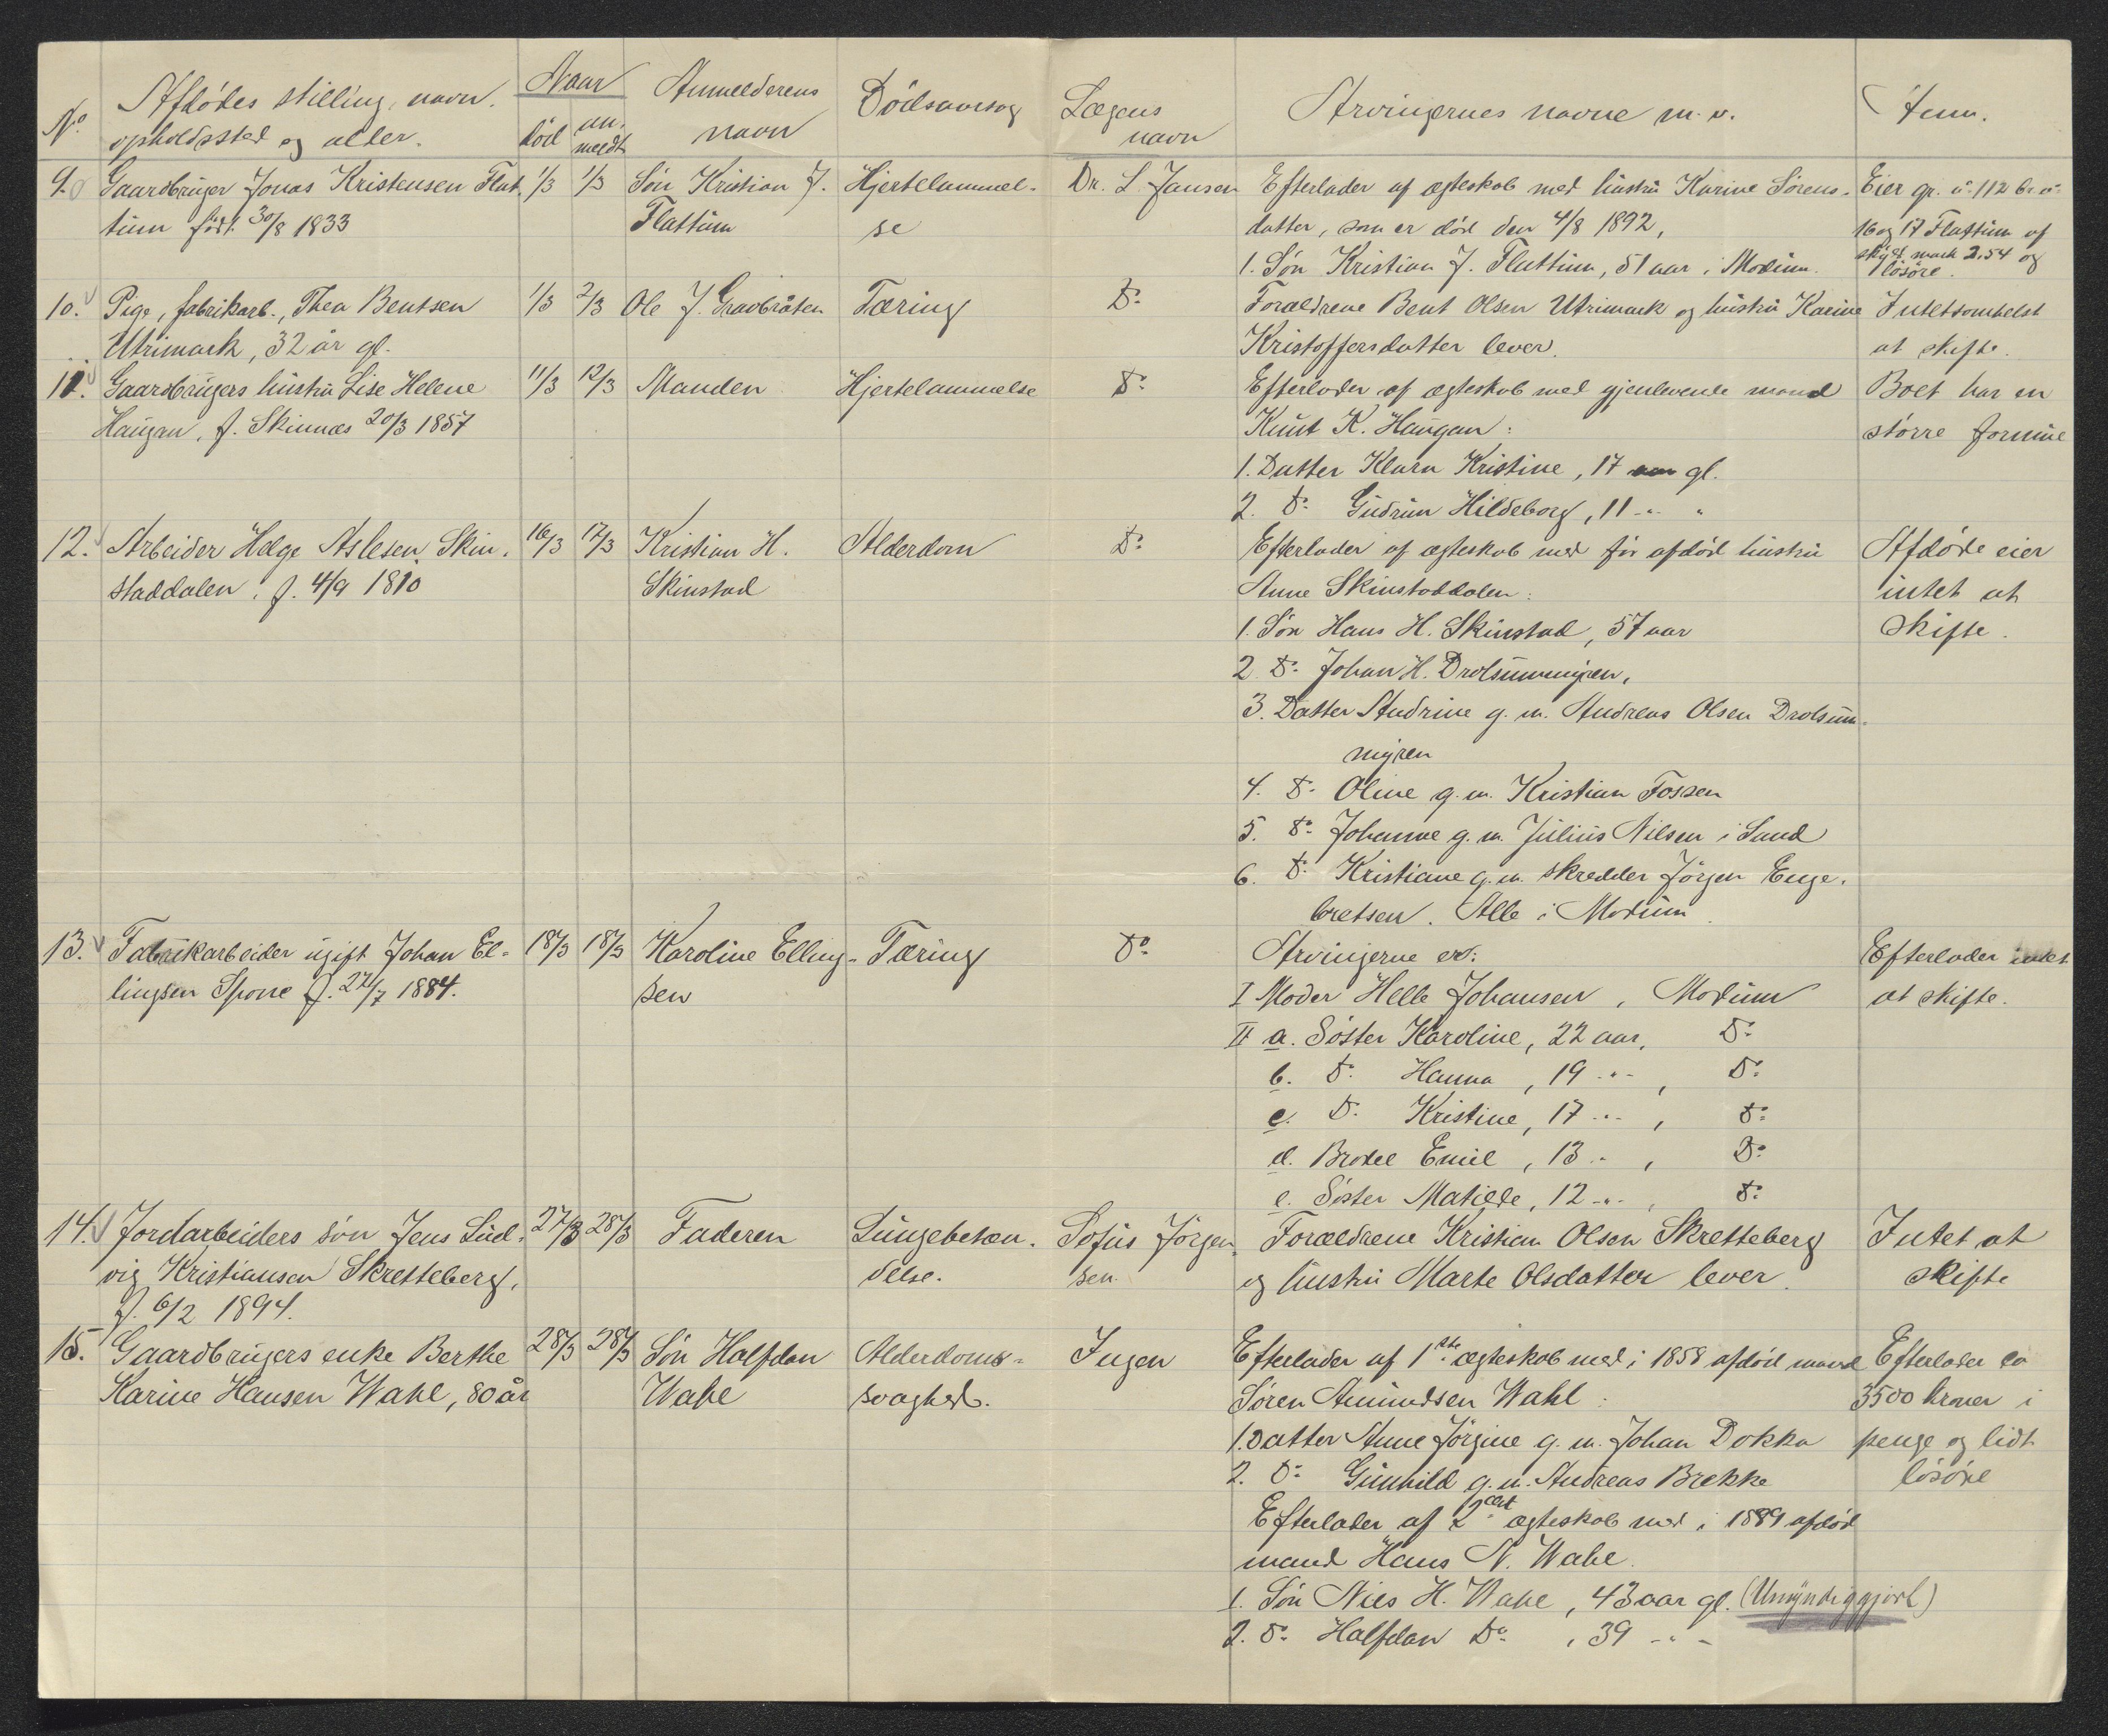 No Afdødes stilling, navn, opholdssted og alder. Naar død an-meldt Anmelderens navn Dödsaarsag Lægens navn Arvingernes navne m.v. Anm.
9. Gaardbruger Jonas Kristensen Flat- 1/3 1/3 Sön Kristian J. Hjertelammel- Dr. L. Jansen Efterlader af ægteskab med hustru Karine Sörens- Eier gr. nr. 112 br. nr.
tum født 30/8 1833 Flattum se datter, som er död den 4/8 1892, 16 og 17 Flattum af
1. Sön Kristian J. Flattum, 51 aar i Modum. skyld mark 2.54 og
lösöre.
10. Pige, fabrikarb., Thea Bentsen 1/3 2/3 Ole J. Gravbråten Tæring Do Forældrene Bent Olsen Utrimark og hustru Karine Intetsomhelst
Utrimark, 32 år gl. Kristoffersdatter lever. at skifte.
11. Gaardbrugers hustru Lise Helene 11/3 12/3 Manden Hjertelammelse Do Efterlader af ægteskab med gjenlevende mand Boet har en
Haugan, f. Skinnes 20/3 1857 Knut K. Haugan: större formue
1. Datter Klara Kristine, 17 aar gl.
2. Do Gudrun Hildeborg, 11 -"- "
12. Arbeider Helge Aslesen Skin- 16/3 17/3 Kristian H. Alderdom Do Efterlader af ægteskab med för afdöd hustru Afdöde eier
staddalen, f. 4/9 1810 Skinstad Anne Skinstaddalen: intet at
1. Sön Hans H. Skinstad, 57 aar skifte.
2. Do Johan H. Drolsummyren,
3. Datter Andrine g. m. Andreas Olsen Drolsum-
myren
4. Do Oline g. m. Kristian Fossen
5. Do Johanne g. m. Julius Nilsen i Sand
6. Do Kristiane g. m. skredder Jörgen Enge-
bretsen. Alle i Modum.
13. Fabrikarbeider ugift Johan El- 18/3 18/3 Karoline Elling- Tæring Do Arvingerne er: Efterlader intet
lingsen Spone f. 27/7 1884. sen I Moder Helle Johansen, Modum at skifte.
II a. Söster Karoline, 22 aar, Do
b. Do Hanna, 19 -"-, Do
c. Do Kristine, 17 -"-, Do
d. Broder Emil, 13 -"-, Do
e. Söster Matilde, 12 -"-, Do
14. Jordarbeiders sön Jens Lud- 27/3 28/3 Faderen Lungebetæn- Sofus Jörgen- Forældrene Kristian Olsen Skretteberg Intet at
vig Kristiansen Skretteberg, delse. sen. og hustru Marte Olsdatter lever. skifte
f. 6/2 1894.
15. Gaardbrugers enke Berthe 28/3 28/3 Sön Halfdan Alderdoms- Ingen Efterlader af 1ste ægteskab med i 1858 afdöd mand Efterlader ca
Karine Hansen Wahl, 80 år Wahl svaghed. Sören Amundsen Wahl: 3500 kroner i
1. Datter Anne Jörgine g. m. Johan Dokka penge og lidt
2. Do Gunhild g. m. Andreas Brekke lösöre
Efterlader af 2det ægteskab med i 1889 afdöd
mand Hans N. Wahl.
1. Sön Nils H. Wahl, 43 aar gl. (Umyndiggjort)
2. Do Halfdan Do, 39 -"-